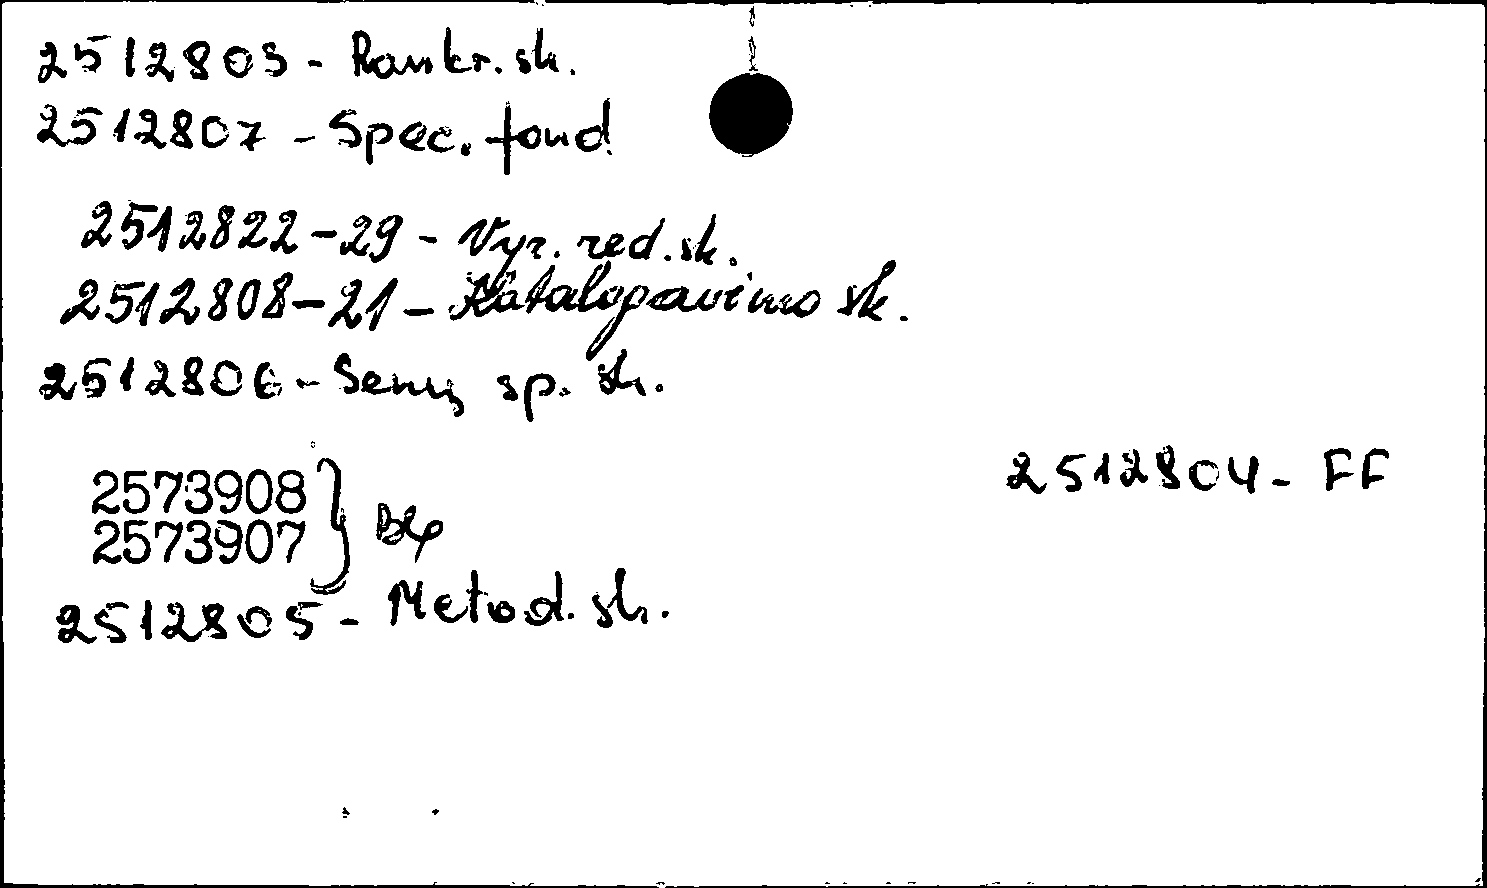 2512803 - Rankr. sk.
2512807 - Spec. fond
2512822-29 - Vyr. red. sk.
2512808-21 - Katalogavimo sk.
2512806 - Senų sp. sk.
2512804 - FF
2573908
2573907
2512805 - Metod. sk.